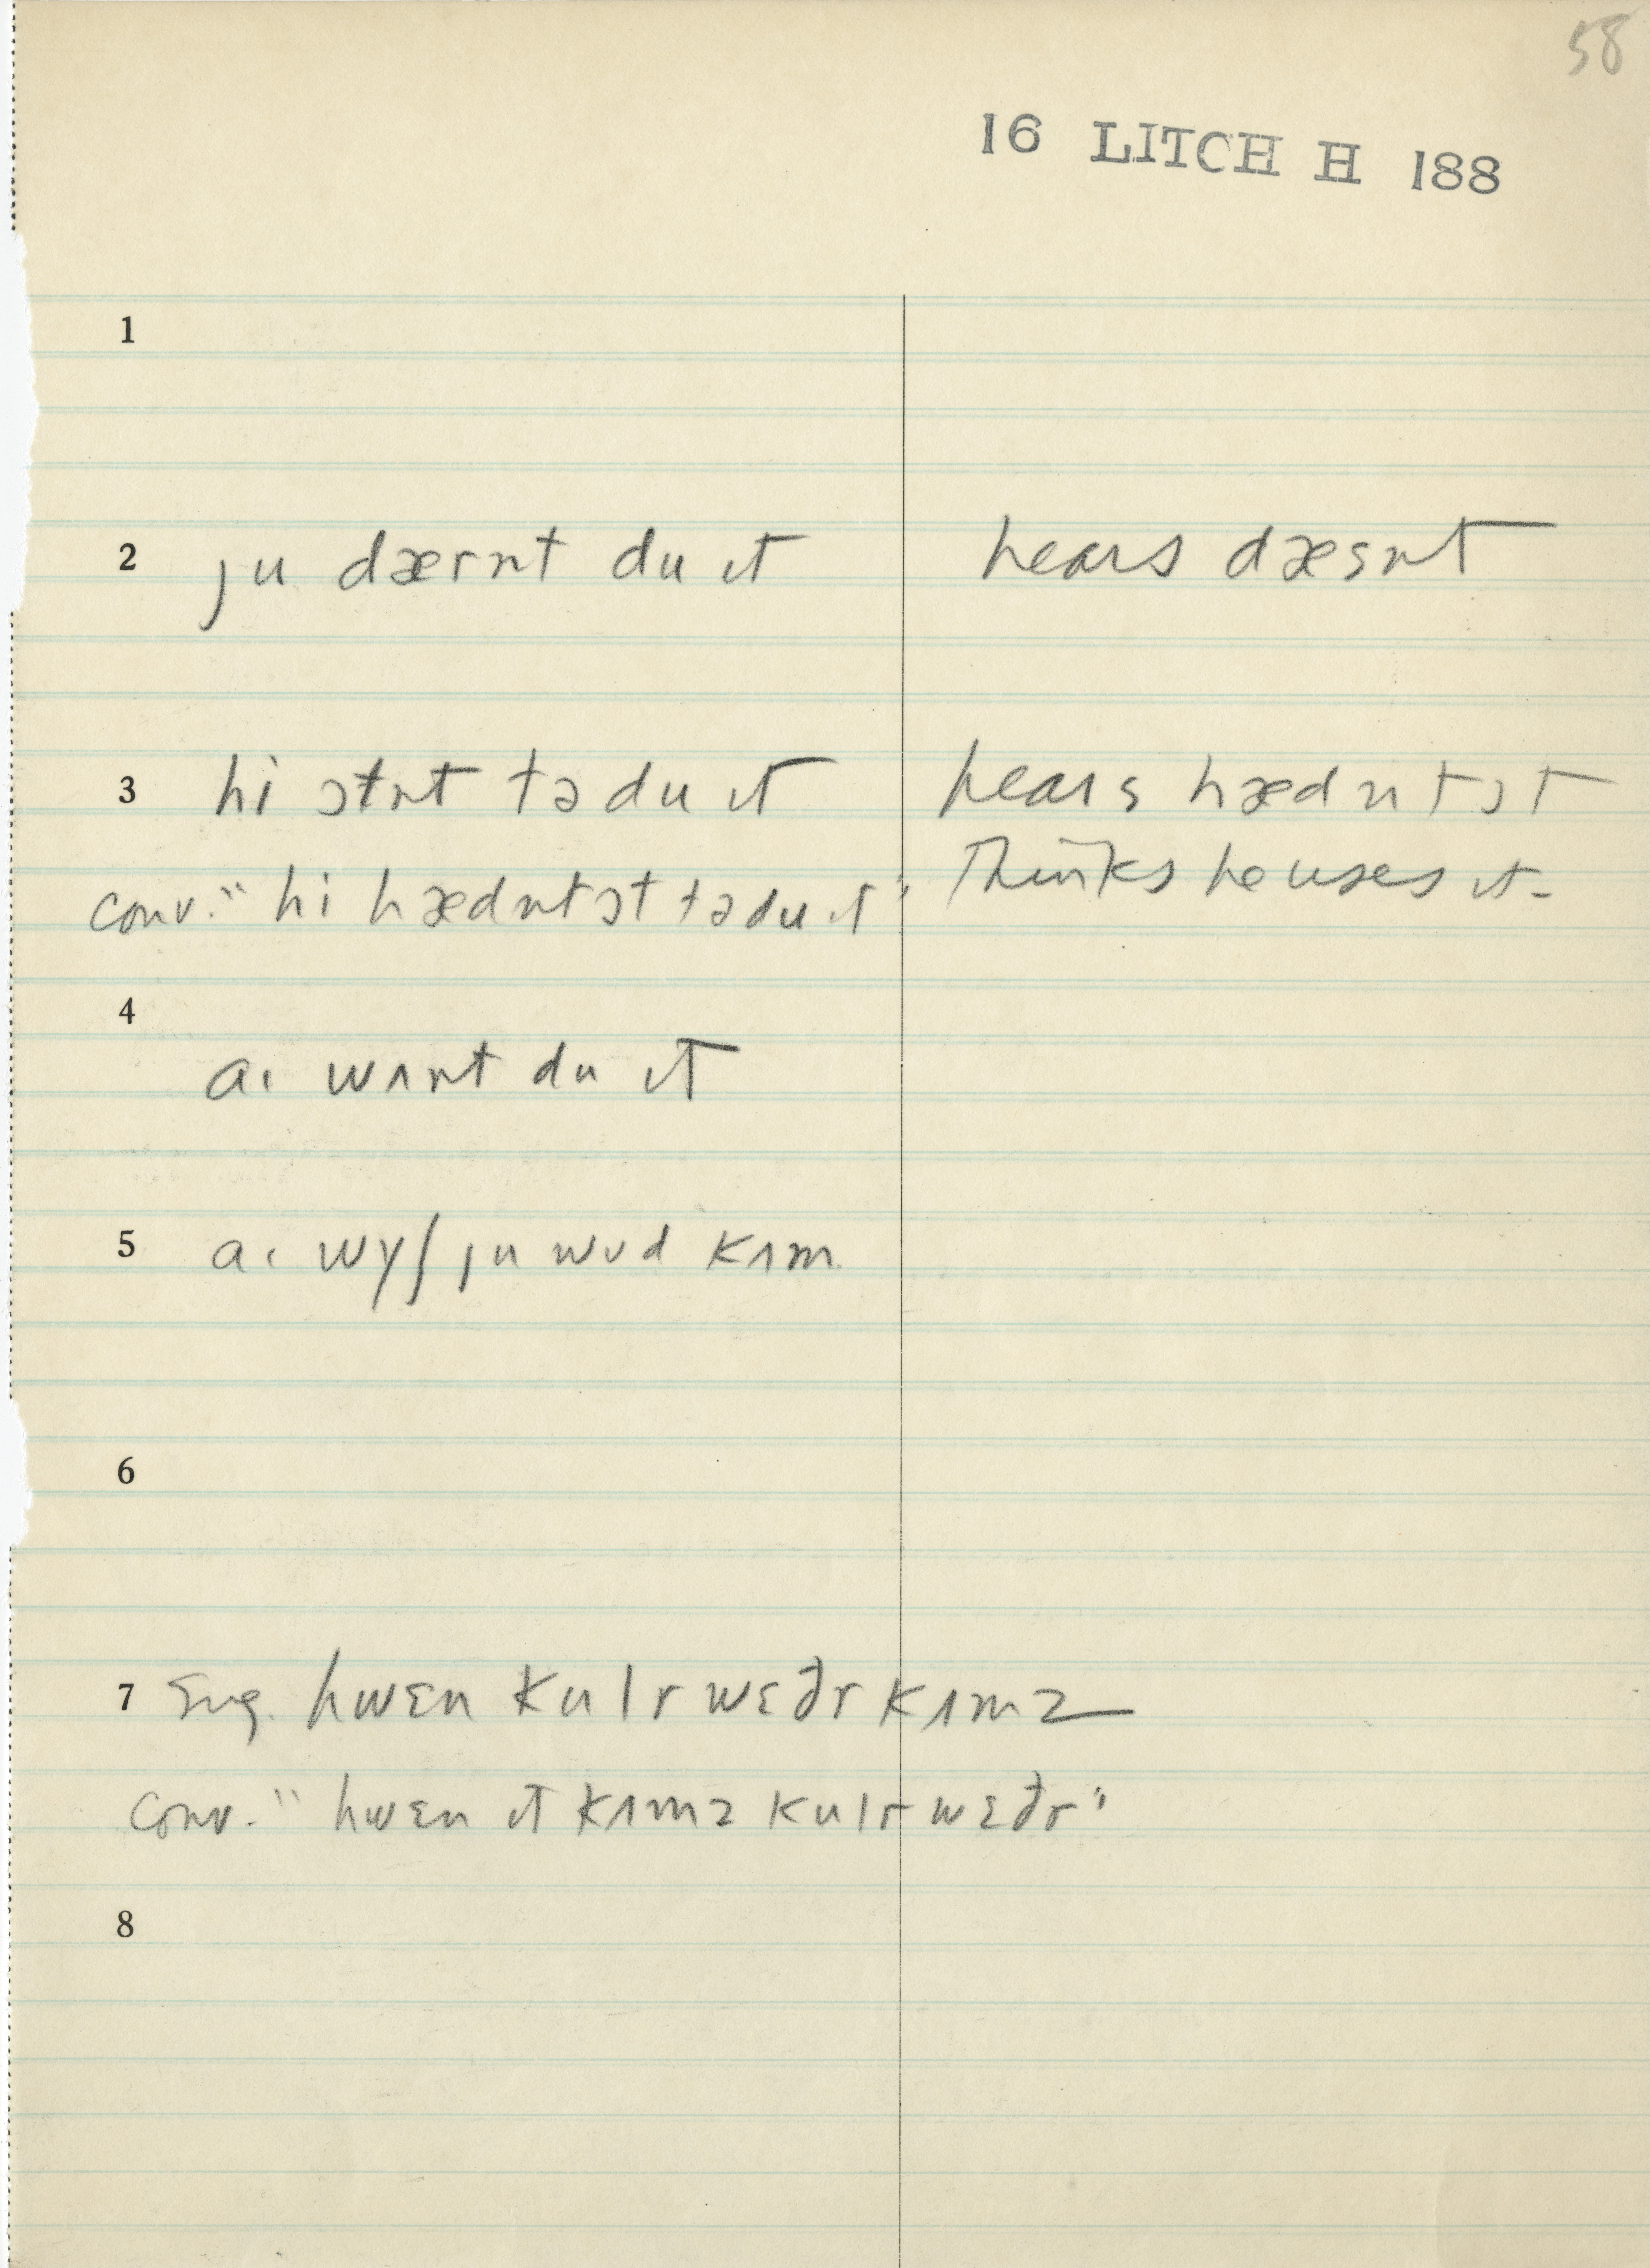 58
16 LITCH H 188
1
2 ju dærnt du ɪt hears dæsnt
3 hi ɔtnt tə du ɪt hears hædnt ɔt
Thinks he uses it-
conv. "hi hædnt ɔt tə du ɪt"
4
aɪ wʌnt du ɪt
5 aɪ wyʃ ju wʊd kʌm
6
7 Sug. hwɛn kulr wɛðr kʌmz
conv. "hwɛn ɪt kʌmz kulr wɛðr"
8